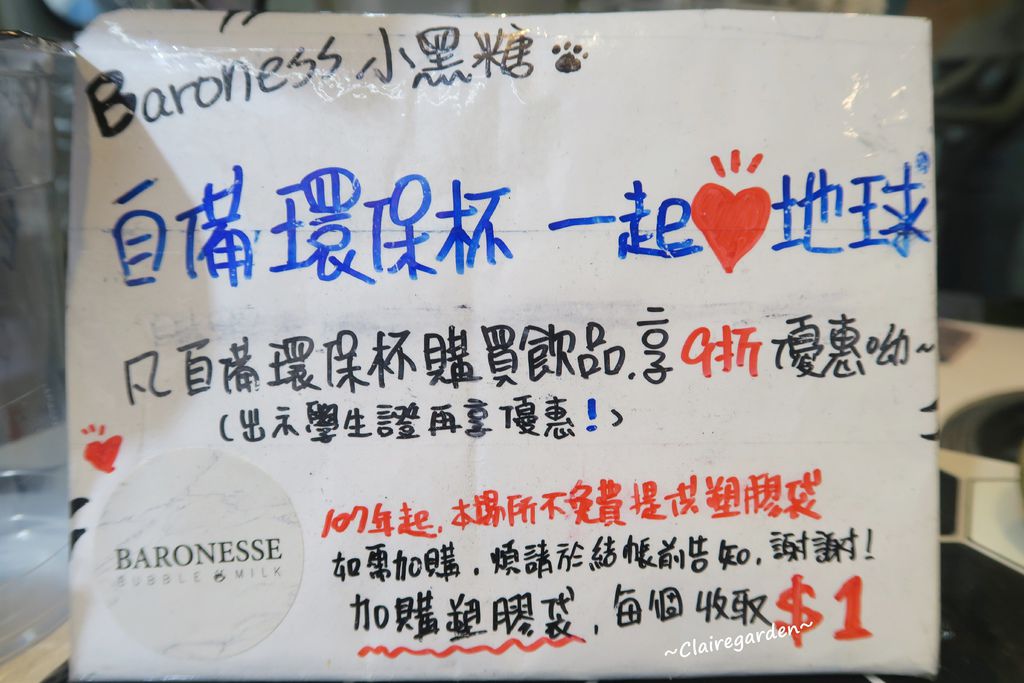 Baroness 小黑糖
自備環保杯 一起地球
凡自備環保杯購買飲品.享9折優惠呦~
(出示學生證再享優惠!)
BARONESSE
BUBBLE MILK
107年起.本場所不免費提供塑膠袋
如需加購.煩請於結帳前告知.謝謝!
加購塑膠袋,每個收取$1
~Clairegarden~